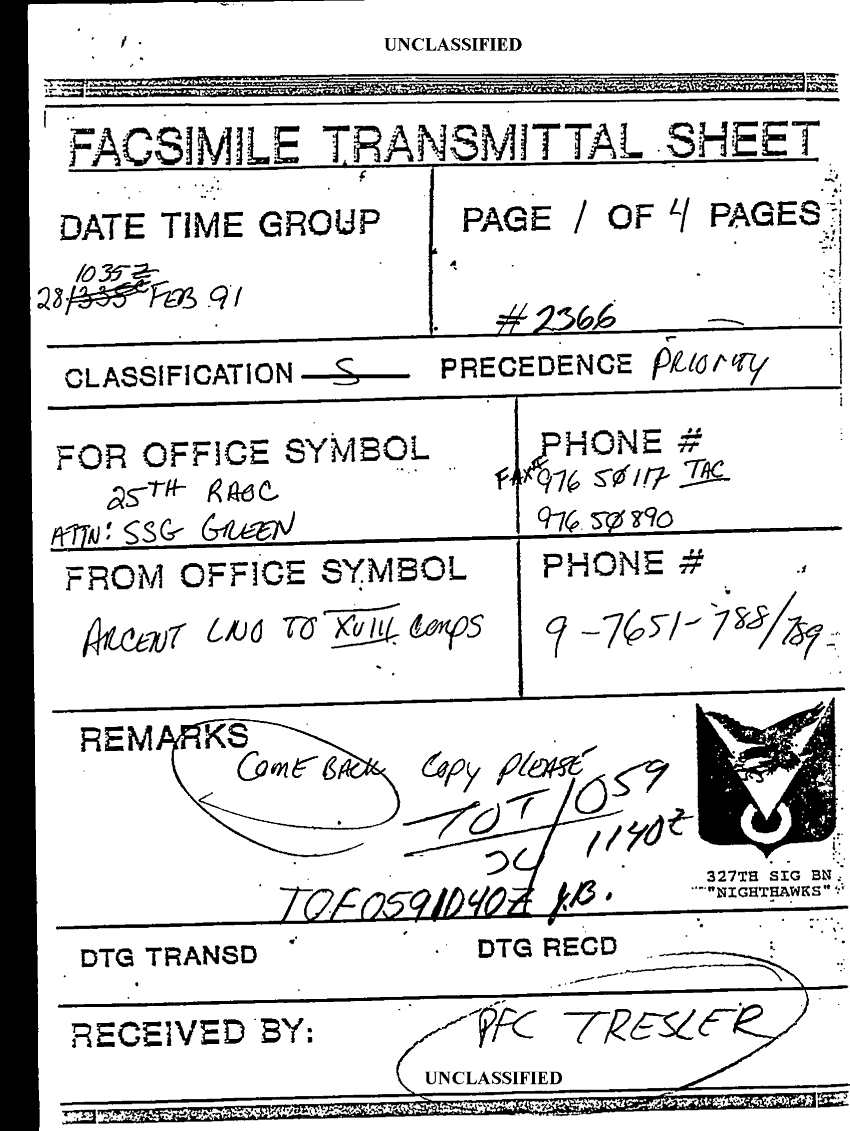 UNCLASSIFIED
FACSIMILE TRANSMITTAL SHEET
DATE TIME GROUP
1035Z
28 FEB 91
PAGE 1 OF 4 PAGES
#2366
CLASSIFICATION S
PRECEDENCE PRIORITY
FOR OFFICE SYMBOL
25TH RAOC
ATTN: SSG GREEN
PHONE #
FAX# 976 50117 TAC
976 50890
FROM OFFICE SYMBOL
ARCENT LNO TO XVIII CORPS
PHONE #
9-7651-788/789
REMARKS
COME BACK COPY PLEASE
TOT/059
1140Z
TOF0591040Z J.B.
327TH SIG BN
"NIGHTHAWKS"
DTG TRANSD
DTG RECD
RECEIVED BY:
PFC TRESLER
UNCLASSIFIED